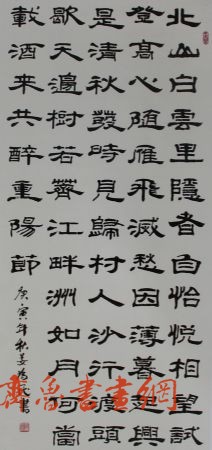 北山白雲里隱者自怡悅相望試
登高心随雁飛滅愁因薄暮起興
是清秋發時見歸村人沙行渡頭
歇天邊樹若薺江畔洲如月何當
載酒来共醉重陽節
庚寅年秋姜 書
齊魯書畫網